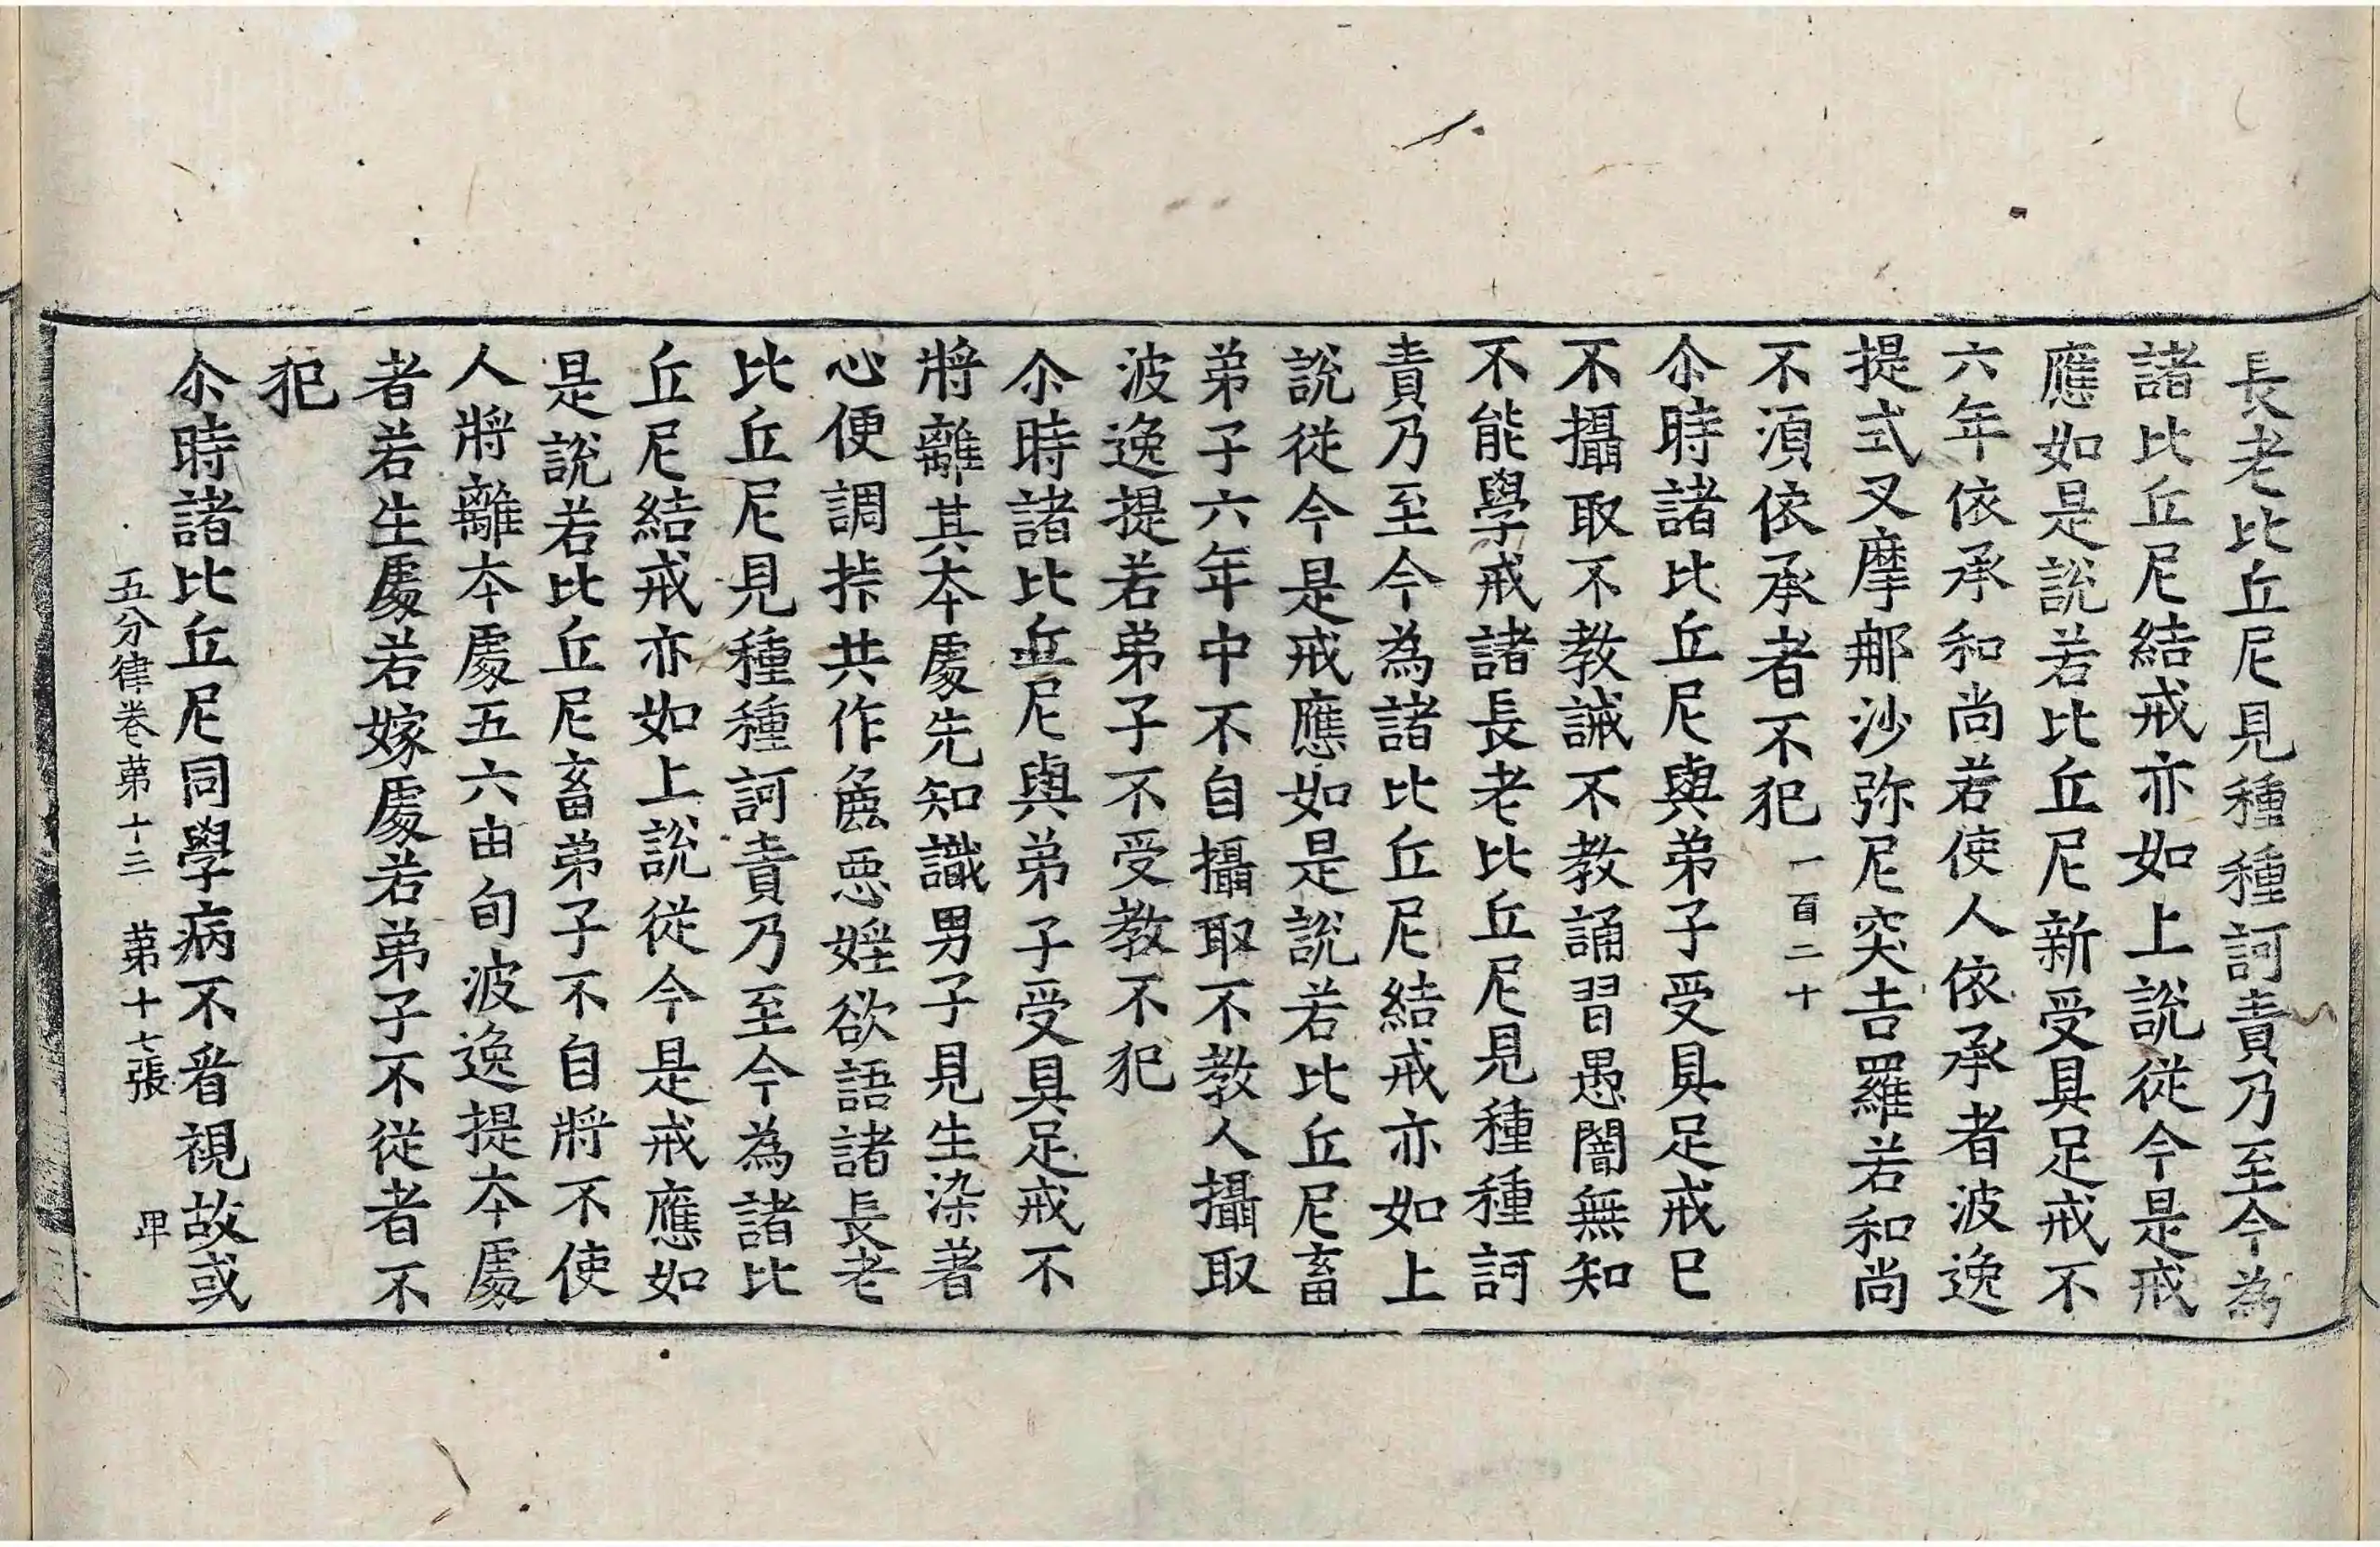 長老比丘尼見種種訶責乃至今為
諸比丘尼結戒亦如上說從今是戒
應如是說若比丘尼新受具足戒不
六年依承和尚若使人依承者波逸
提式叉摩郍沙弥尼突吉羅若和尚
不湏依承者不犯一百二十
尒時諸比丘尼與弟子受具足戒已
不攝取不教誡不教誦習愚闇無知
不能學戒諸長老比丘尼見種種訶
責乃至今為諸比丘尼結戒亦如上
說從今是戒應如是說若比丘尼畜
弟子六年中不自攝取不教人攝取
波逸提若弟子不受教不犯
尒時諸比丘尼與弟子受具足戒不
將離其夲處先知識男子見生染著
心便調挊共作麁惡婬欲語諸長老
比丘尼見種種訶責乃至今為諸比
丘尼結戒亦如上說從今是戒應如
是說若比丘尼畜弟子不自將不使
人將離夲處五六由旬波逸提夲處
者若生處若嫁處若弟子不從者不
犯
尒時諸比丘尼同學病不看視故或
五分律卷第十三 第十七張 甲